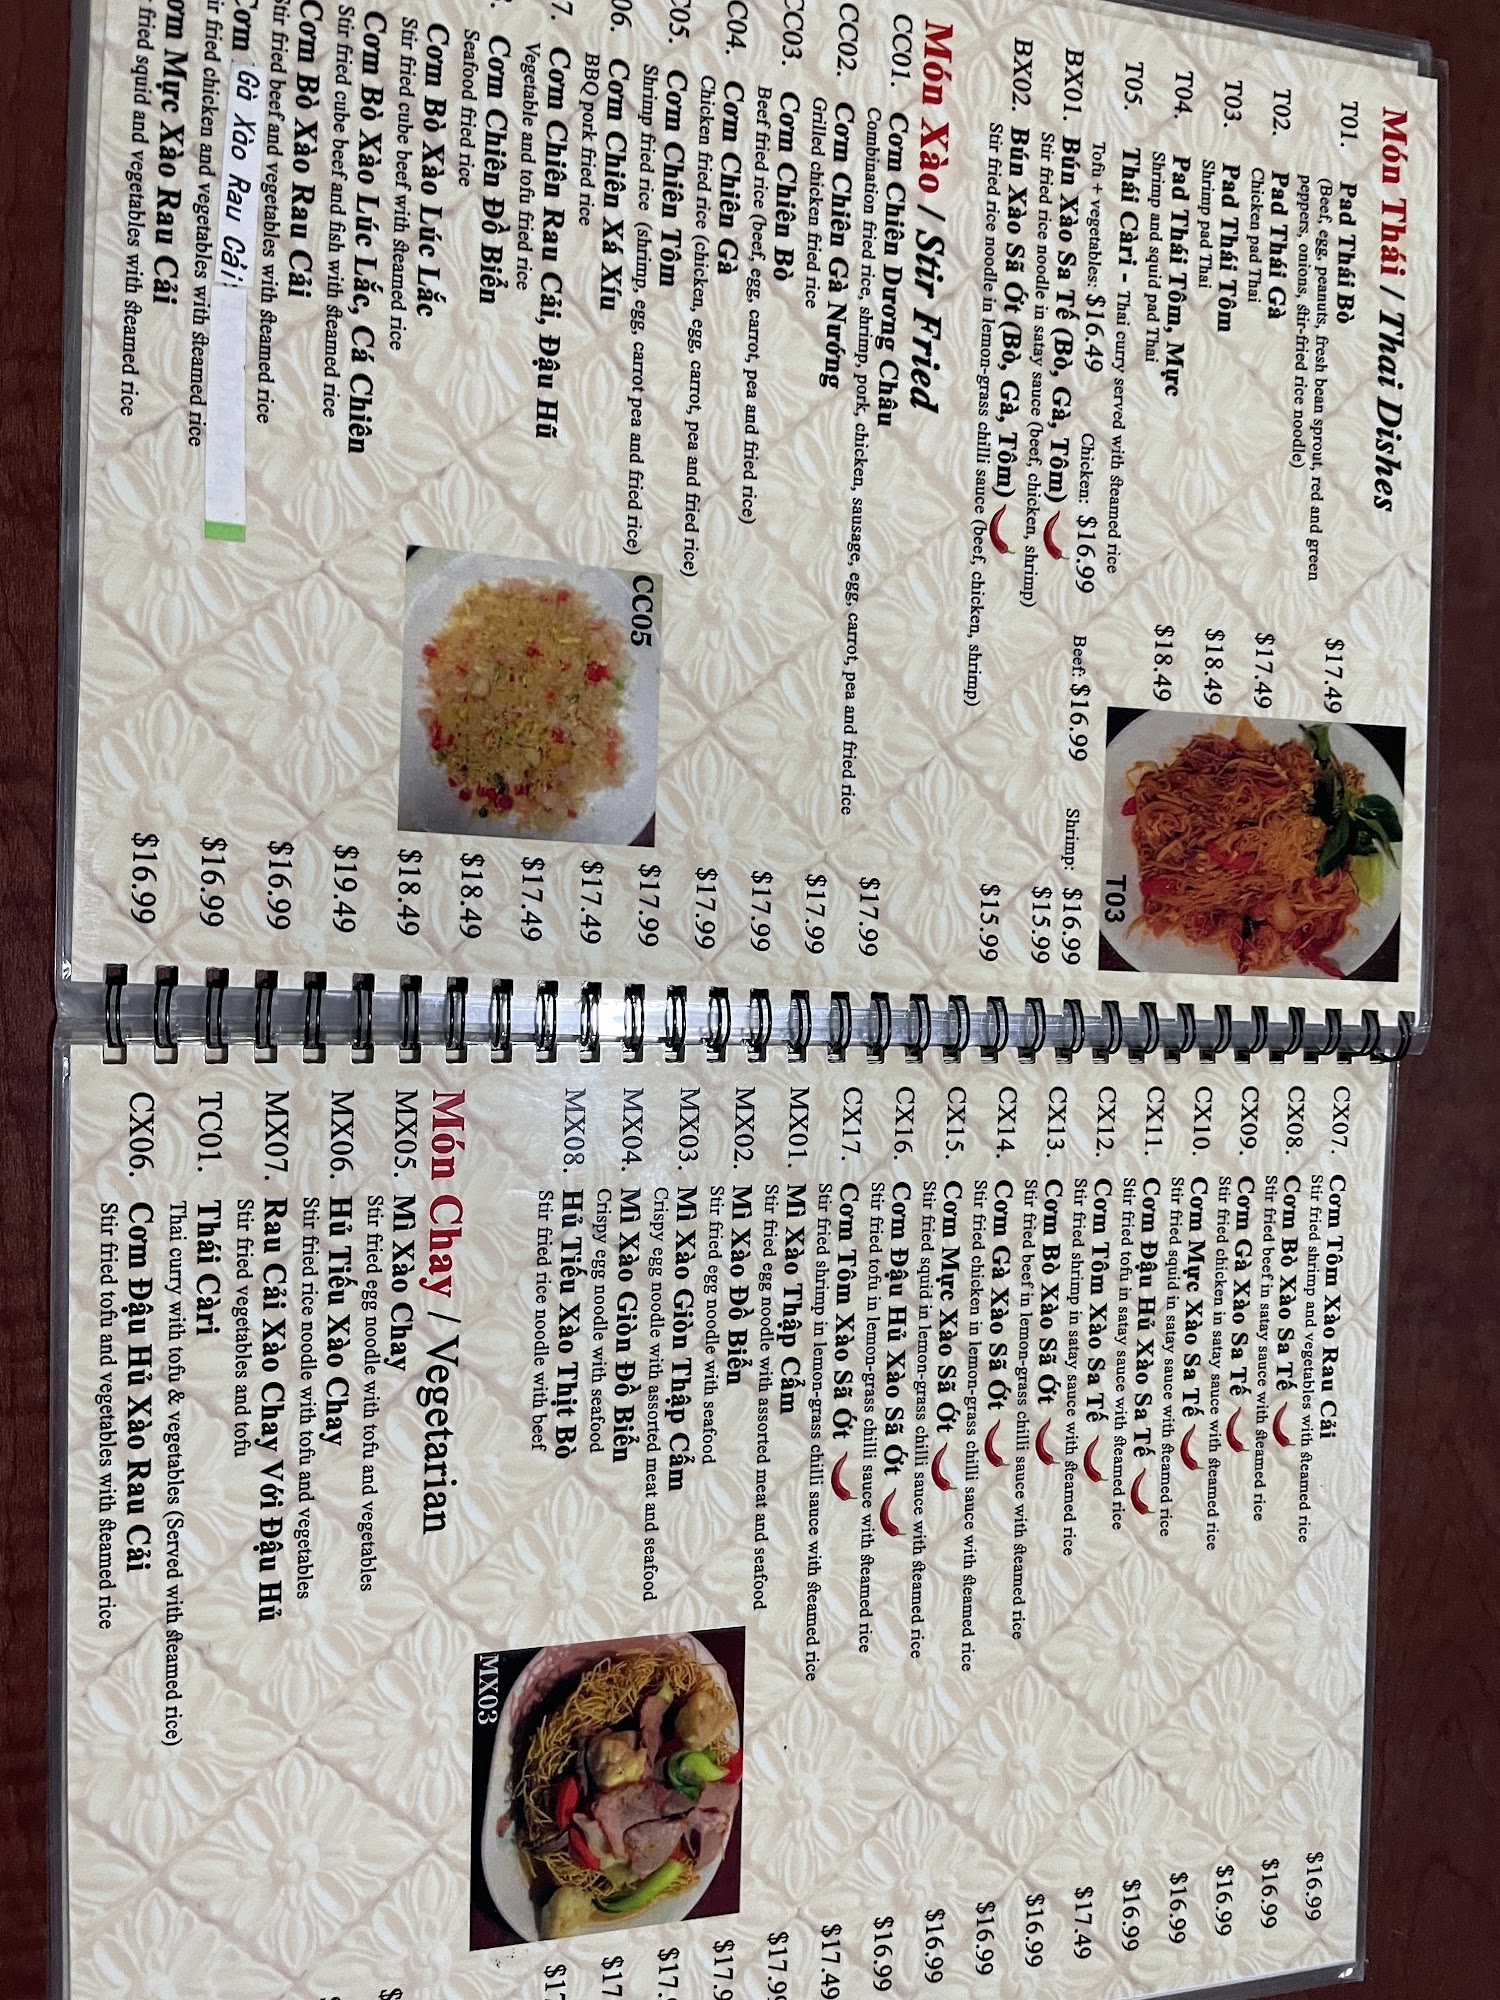 Món Thái / Thai Dishes
T01. Pad Thái Bò $17.49
(Beef, egg, peanuts, fresh bean sprout, red and green
peppers, onions, stir-fried rice noodle)
T02. Pad Thái Gà $17.49
Chicken pad Thai
T03. Pad Thái Tôm $18.49
Shrimp pad Thai
T04. Pad Thái Tôm, Mực $18.49
Shrimp and squid pad Thai
T05. Thái Càri - Thai curry served with steamed rice
Tofu + vegetables: $16.49 Chicken: $16.99 Beef: $16.99 Shrimp: $16.99
BX01. Bún Xào Sa Tế (Bò, Gà, Tôm) $15.99
Stir fried rice noodle in satay sauce (beef, chicken, shrimp)
BX02. Bún Xào Sã Ớt (Bò, Gà, Tôm) $15.99
Stir fried rice noodle in lemon-grass chilli sauce (beef, chicken, shrimp)
T03
Món Xào / Stir Fried
CC01. Cơm Chiên Dương Châu $17.99
Combination fried rice, shrimp, pork, chicken, sausage, egg, carrot, pea and fried rice
CC02. Cơm Chiên Gà Nướng $17.99
Grilled chicken fried rice
CC03. Cơm Chiên Bò $17.99
Beef fried rice (beef, egg, carrot, pea and fried rice)
C04. Cơm Chiên Gà $17.99
Chicken fried rice (chicken, egg, carrot, pea and fried rice)
C05. Cơm Chiên Tôm $17.99
Shrimp fried rice (shrimp, egg, carrot pea and fried rice)
06. Cơm Chiên Xá Xíu $17.49
BBQ pork fried rice
7. Cơm Chiên Rau Cải, Đậu Hũ $17.49
Vegetable and tofu fried rice
Cơm Chiên Đồ Biển $18.49
Seafood fried rice
Cơm Bò Xào Lúc Lắc $18.49
Stir fried cube beef with steamed rice
Cơm Bò Xào Lúc Lắc, Cá Chiên $19.49
Stir fried cube beef and fish with steamed rice
Cơm Bò Xào Rau Cải $16.99
Stir fried beef and vegetables with steamed rice
Cơm Gà Xào Rau Cải $16.99
fried chicken and vegetables with steamed rice
Mực Xào Rau Cải $16.99
fried squid and vegetables with steamed rice
CC05
CX07. Cơm Tôm Xào Rau Cải $16.99
Stir fried shrimp and vegetables with steamed rice
CX08. Cơm Bò Xào Sa Tế $16.99
Stir fried beef in satay sauce with steamed rice
CX09. Cơm Gà Xào Sa Tế $16.99
Stir fried chicken in satay sauce with steamed rice
CX10. Cơm Mực Xào Sa Tế $16.99
Stir fried squid in satay sauce with steamed rice
CX11. Cơm Đậu Hủ Xào Sa Tế $16.99
Stir fried tofu in satay sauce with steamed rice
CX12. Cơm Tôm Xào Sa Tế $17.49
Stir fried shrimp in satay sauce with steamed rice
CX13. Cơm Bò Xào Sã Ớt $16.99
Stir fried beef in lemon-grass chilli sauce with steamed rice
CX14. Cơm Gà Xào Sã Ớt $16.99
Stir fried chicken in lemon-grass chilli sauce with steamed rice
CX15. Cơm Mực Xào Sã Ớt $16.99
Stir fried squid in lemon-grass chilli sauce with steamed rice
CX16. Cơm Đậu Hủ Xào Sã Ớt $16.99
Stir fried tofu in lemon-grass chilli sauce with steamed rice
CX17. Cơm Tôm Xào Sã Ớt $17.49
Stir fried shrimp in lemon-grass chilli sauce with steamed rice
MX01. Mì Xào Thập Cẩm $17.9
Stir fried egg noodle with assorted meat and seafood
MX02. Mì Xào Đồ Biển $17.9
Stir fried egg noodle with seafood
MX03. Mì Xào Giòn Thập Cẩm $17.
Crispy egg noodle with assorted meat and seafood
MX04. Mì Xào Giòn Đồ Biển $17
Crispy egg noodle with seafood
MX08. Hủ Tiếu Xào Thịt Bò $17
Stir fried rice noodle with beef
MX03
Món Chay / Vegetarian
MX05. Mì Xào Chay $
Stir fried egg noodle with tofu and vegetables
MX06. Hủ Tiếu Xào Chay
Stir fried rice noodle with tofu and vegetables
MX07. Rau Cải Xào Chay Với Đậu Hủ
Stir fried vegetables and tofu
TC01. Thái Càri
Thai curry with tofu & vegetables (Served with steamed rice)
CX06. Cơm Đậu Hủ Xào Rau Cải
Stir fried tofu and vegetables with steamed rice